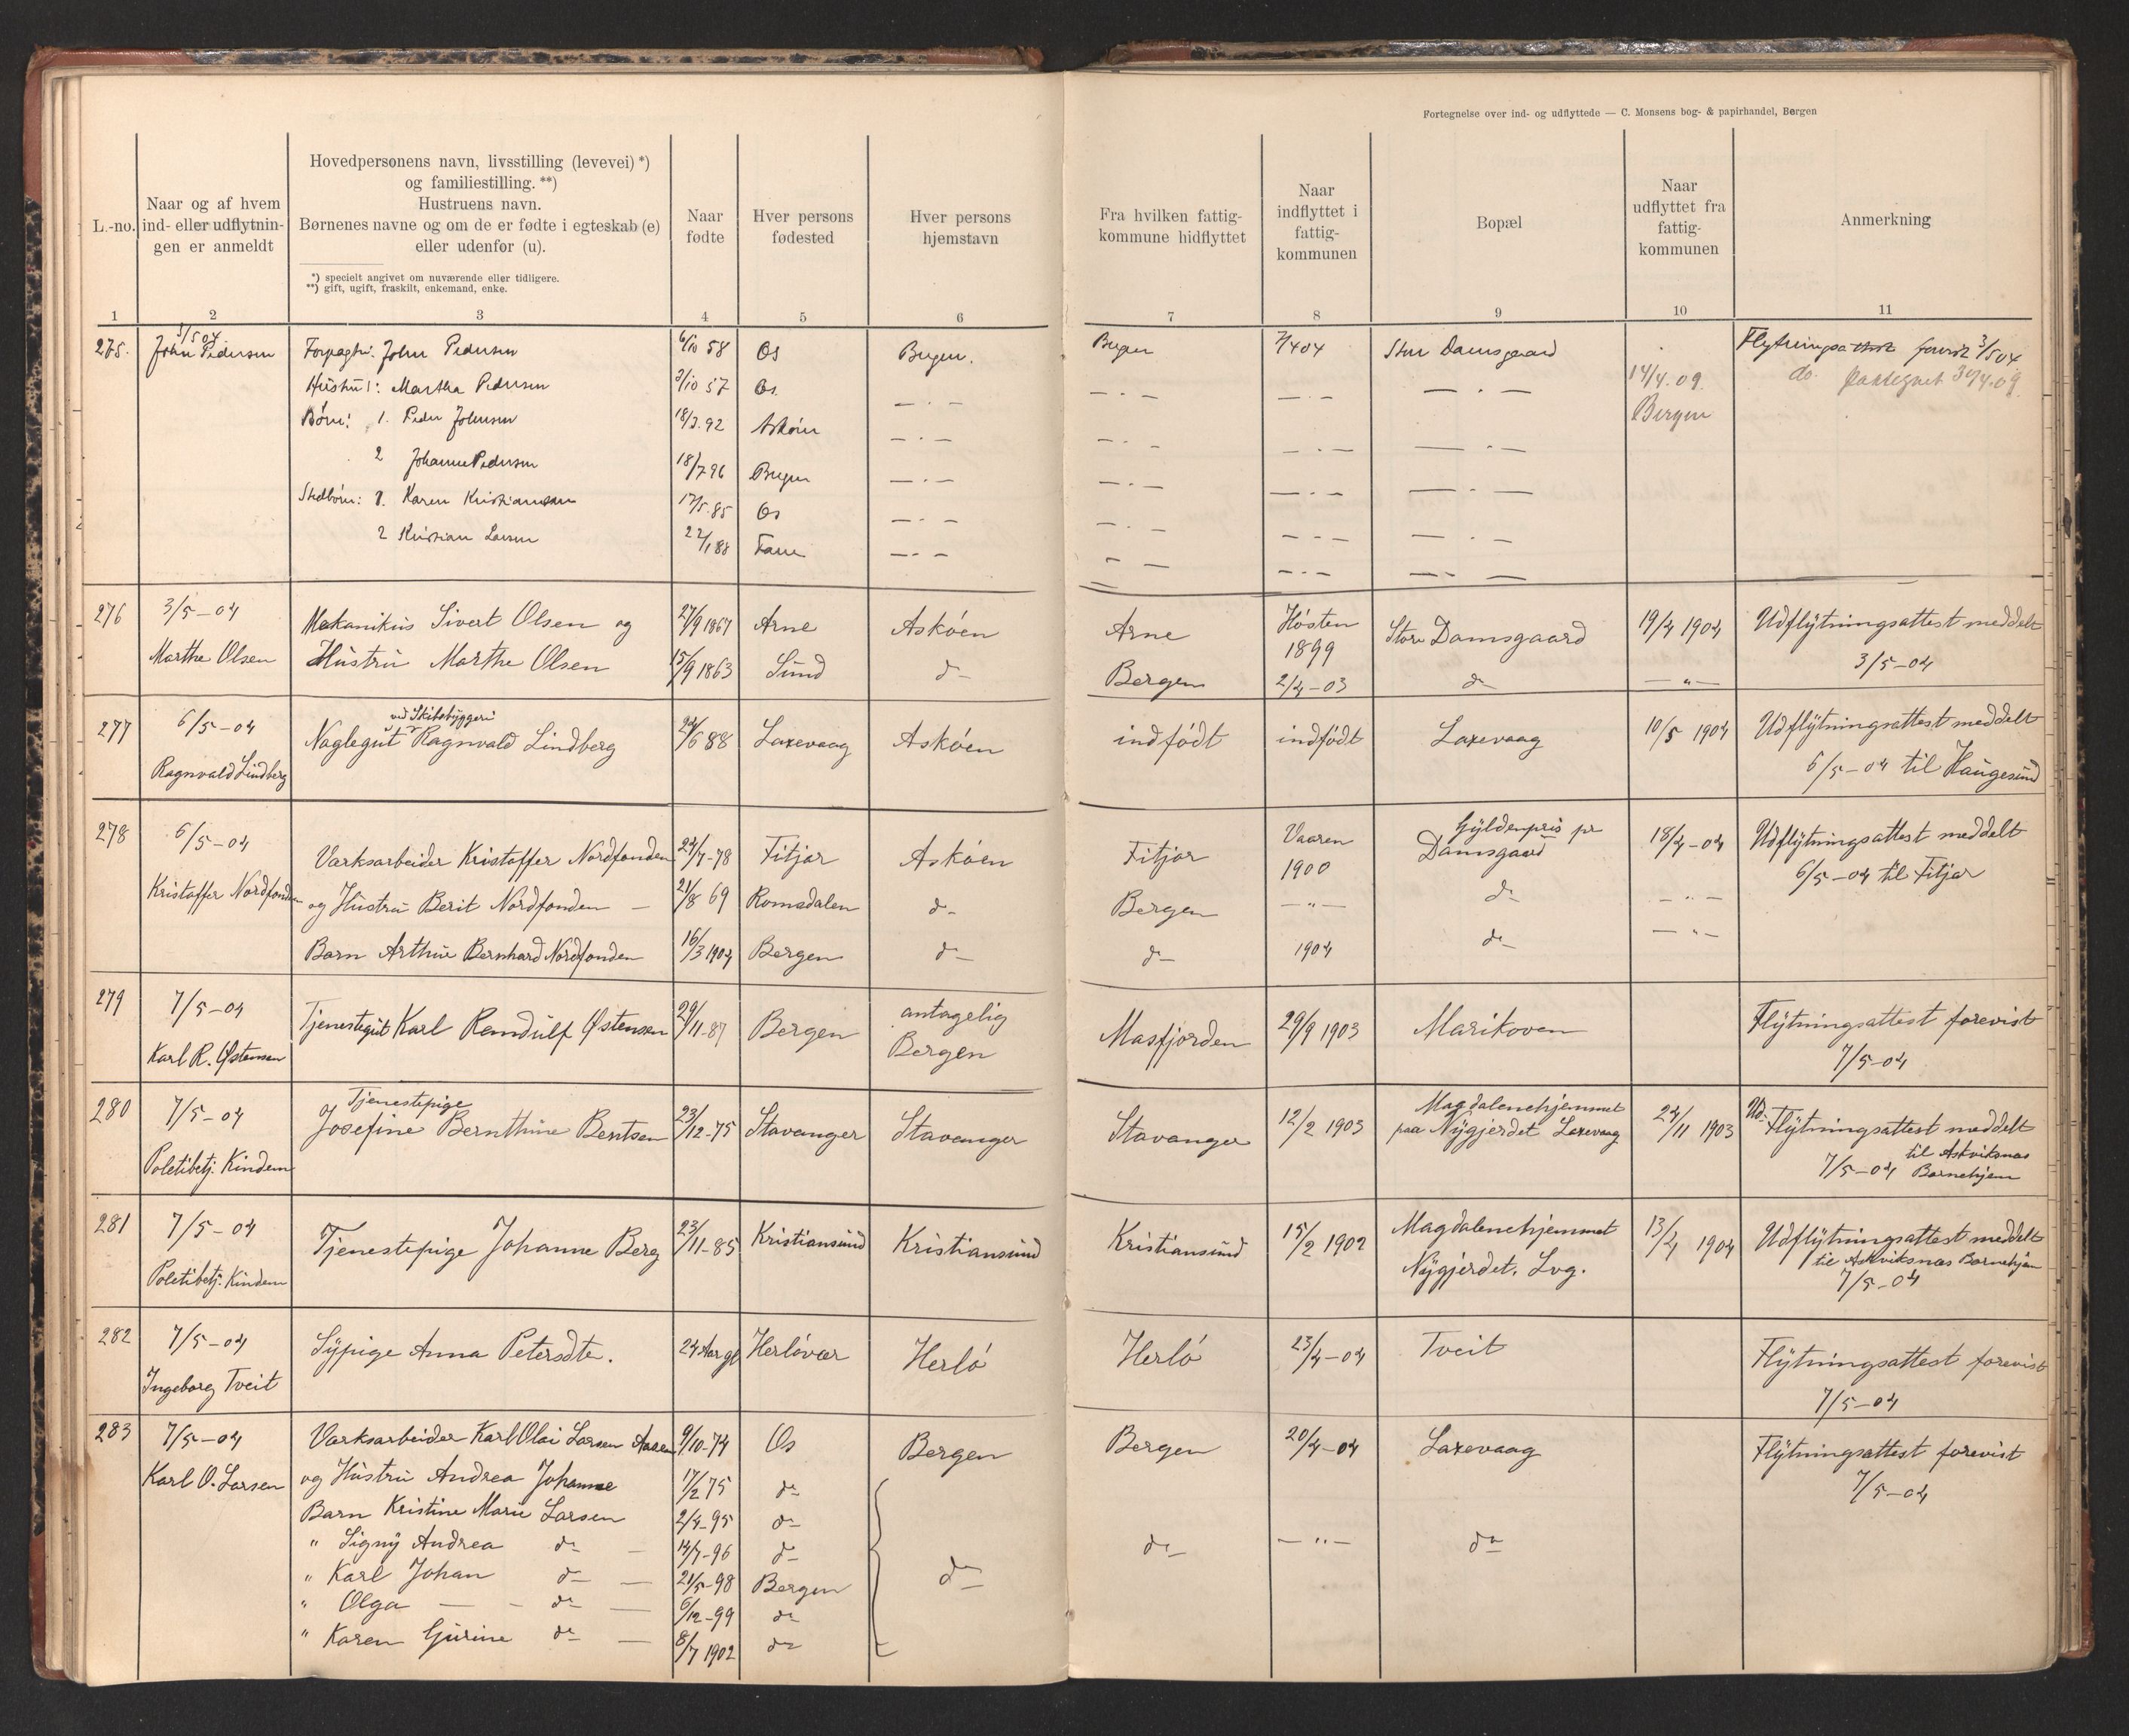 Fortegnelse over ind- og udflyttede — C. Monsens bog- & papirhandel, Bergen
L.-no.
Naar og af hvem
ind- eller udflytnin-
gen er anmeldt
Hovedpersonens navn, livsstilling (levevei) *)
og familiestilling. **)
Hustruens navn.
Børnenes navne og om de er fødte i egteskab (e)
eller udenfor (u).
*) specielt angivet om nuværende eller tidligere.
**) gift, ugift, fraskilt, enkemand, enke.
Naar
fødte
Hver persons
fødested
Hver persons
hjemstavn
Fra hvilken fattig-
kommune hidflyttet
Naar
indflyttet i
fattig-
kommunen
Bopæl
Naar
udflyttet fra
fattig-
kommunen
Anmerkning
1 2 3 4 5 6 7 8 9 10 11
275. 3/5 04 John Pedersen Forpagter: John Pedersen 6/10 58 Os Bergen. Bergen 7/4 04 Stor Damsgaard Flytningsattest forvist 3/5 04
Hustru: Martha Pedersen 3/10 57 Os — . — — . — — . — — . — 14/4. 09. do. paategnet 30/4.09.
Børn: 1. Peder Johnsen 18/3. 92 Askøen — . — — . — — . — — . — Bergen
2 Johanne Pedersen 18/7 96 Bergen — . — — . — — . — — . —
Stedbørn: 1. Karen Kristiansen 17/5. 85 Os — . — — . — — . — — . —
2 Kristian Larsen 22/1 88 Fane — . — — — — . — — . —
276 3/5-04 Mekanikus Sivert Olsen og 27/9 1867 Arne Askøen Arne Høsten 1899 Store Damsgaard 19/4 1904 Udflytningsattest meddelt
Marthe Olsen Hustru Marthe Olsen 15/9 1863 Sund do Bergen 2/4-03 do — " — 3/5-04
277 6/5-04 ved Skibsbyggeri
Naglegut Ragnvald Lindberg 24/6 88 Laxevaag Askøen indfødt indfødt Laxevaag 10/5 1904 Udflytningsattest meddelt
Ragnvald Lindberg 6/5-04 til Haugesund
278 6/5-04 Værksarbeider Kristoffer Nordfonden 24/7-78 Fitjar Askøen Fitjar Vaaren 1900 Gyldenpris pr Damsgaard 18/4-04 Udflytningsattest meddelt
Kristoffer Nordfonden og Hustru Berit Nordfonden — 21/8 69 Romsdalen do Bergen — " — do — " — 6/5-04 til Fitjar
Barn Arthur Bernhard Nordfonden 16/3 1904 Bergen do do 1904 do — " —
279 7/5-04 Tjenestegut Karl Remdulf Østensen 29/11-87 Bergen antagelig Bergen Masfjorden 29/9 1903 Marikoven Flytningsattest forevist
Karl R. Østensen 7/5-04
280 7/5-04 Tjenestepige
Josefine Bernthine Bentsen 23/12-75 Stavanger Stavanger Stavanger 12/2 1903 Magdalenehjemmet paa Nygjerdet Laxevaag 24/11 1903 Ud-Flytningsattest meddelt
Politibetj. Kindem 7/5-04 til Askviknes Barnehjem
281 7/5-04 Tjenestepige Johanne Berg 23/11-85 Kristiansund Kristiansund Kristiansund 15/2 1902 Magdalenehjemmet 13/4 1904 Udflytningsattest meddelt
Politibetj. Kindem Nygjerdet. Lvg. til Askviknes Barnehjem
7/5-04
282 7/5-04 Sypige Anna Petersdtr. 24 Aar gl Herløvær Herlø Herlø 23/4-04 Tveit Flytningsattest forevist
Ingeborg Tveit 7/5-04
283 7/5-04 Værksarbeider Karl Olai Larsen Aasen 9/10-74 Os Bergen Bergen 20/4-04 Laxevaag Flytningsattest forevist
Karl O. Larsen og Hustru Andrea Johanne 17/2 75 do 7/5-04
Barn Kristine Marie Larsen 2/4-95 do
" Signy Andrea do — 14/7-96 do do do — " — do
" Karl Johan do — 21/5-98 Bergen
" Olga — - do — 6/12-99 do
" Karen Gurine do — 8/7 1902 do